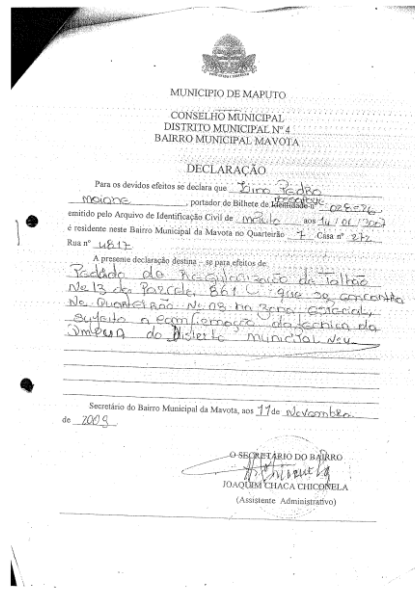 MUNICIPIO DE MAPUTO
CONSELHO MUNICIPAL
DISTRITO MUNICIPAL Nº 4
BAIRRO MUNICIPAL MAVOTA
DECLARAÇÃO
Para os devidos efeitos se declara que
, portador de Bilhete de Identidade nº
emitido pelo Arquivo de Identificação Civil de Maputo aos
é residente neste Bairro Municipal da Mavota no Quarteirão 7 Casa nº 272
Rua nº 4817
A presente declaração destina – se para efeitos de:
Pedido de Regularização da Talhão
Nº 13 da Parcela, 861 que se encontra
No Quarteirão Nº 08 na zona
sujeito a comfirmação da tecnica da
do Disterto municipal Nº 4
Secretário do Bairro Municipal da Mavota, aos 11 de Novembro
de 2009
O SECRETÁRIO DO BAIRRO
JOAQUIM CHACA CHICONELA
(Assistente Administrativo)